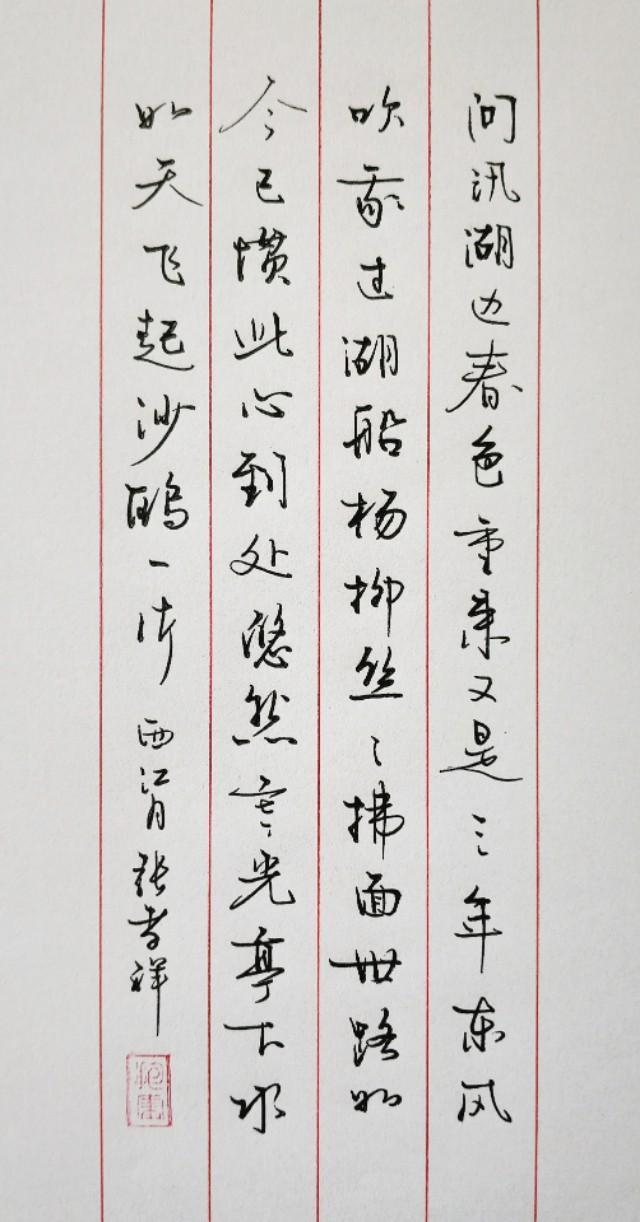 问讯湖边春色重来又是三年东风
吹我过湖船杨柳丝〻拂面世路如
今已惯此心到处悠然寒光亭下水
如天飞起沙鸥一片 西江月 张孝祥